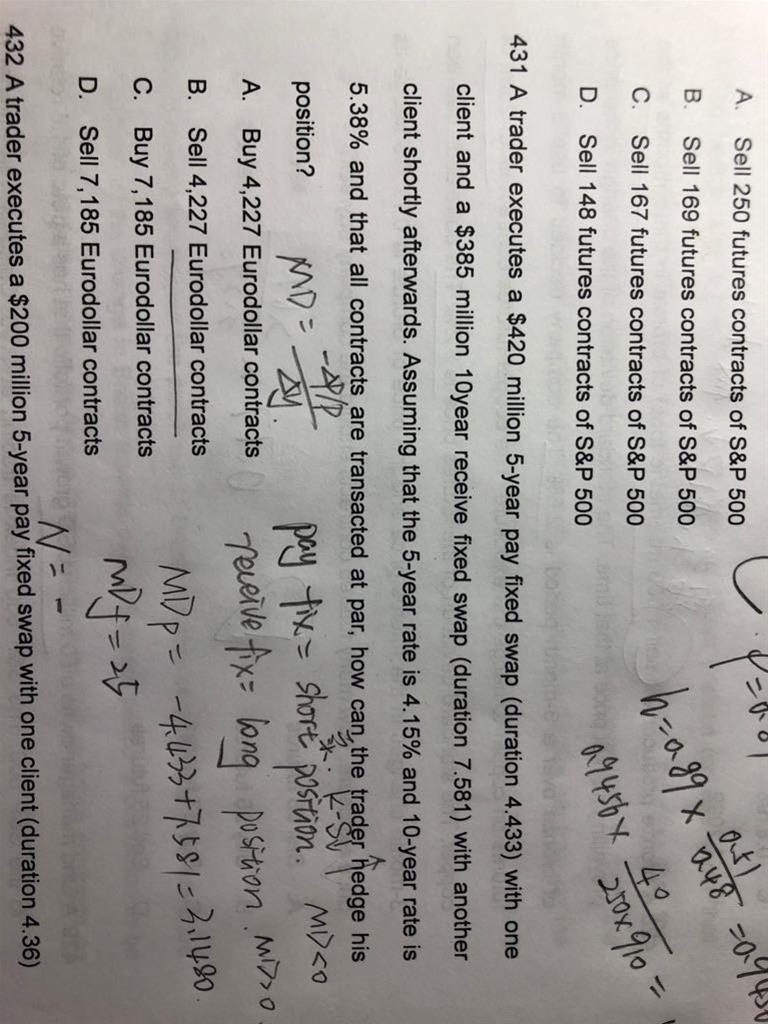 A. Sell 250 futures contracts of S&P 500
B. Sell 169 futures contracts of S&P 500
C. Sell 167 futures contracts of S&P 500
D. Sell 148 futures contracts of S&P 500
h=0.89 × 0.51/0.48 =
0.9456 × 40/250×910 =
431 A trader executes a $420 million 5-year pay fixed swap (duration 4.433) with one
client and a $385 million 10year receive fixed swap (duration 7.581) with another
client shortly afterwards. Assuming that the 5-year rate is 4.15% and 10-year rate is
5.38% and that all contracts are transacted at par, how can the trader hedge his
position?
MD = -ΔP/P / Δy.
pay fix = short position. MD<0
A. Buy 4,227 Eurodollar contracts
receive fix = long position. MD>0
B. Sell 4,227 Eurodollar contracts
MDp = -4.433+7.581=3.1480.
C. Buy 7,185 Eurodollar contracts
MDf = 25
D. Sell 7,185 Eurodollar contracts
N = -
432 A trader executes a $200 million 5-year pay fixed swap with one client (duration 4.36)